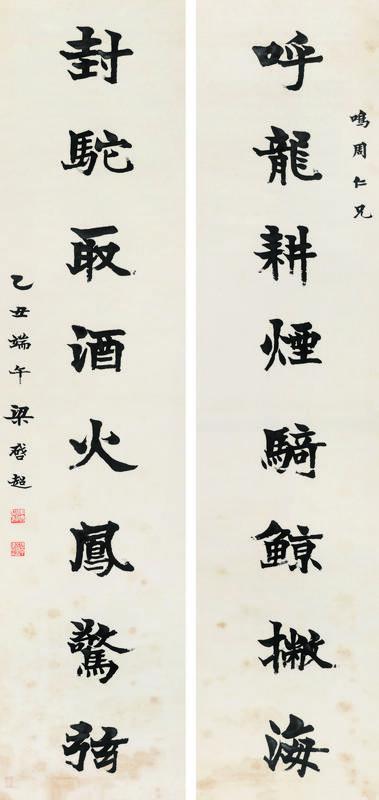 鳴周仁兄
呼龍耕煙騎鯨撇海
封駝取酒火鳳驚弦
乙丑端午梁啓超